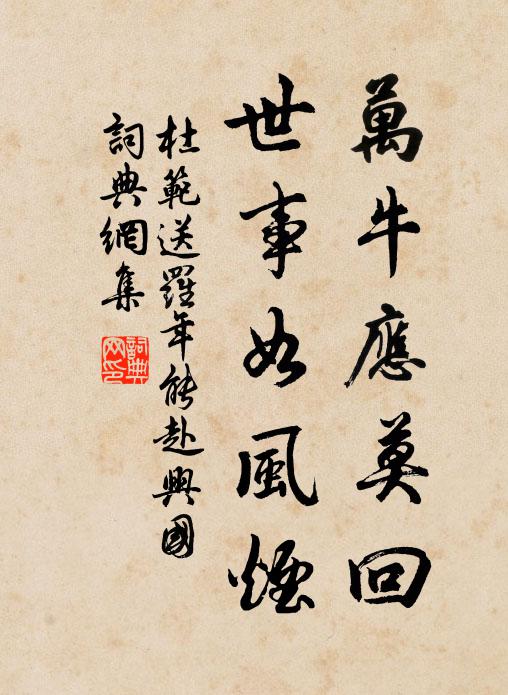 萬牛應莫回
世事如風煙
杜範送羅年能赴興國
詞典網集
詞典
网印